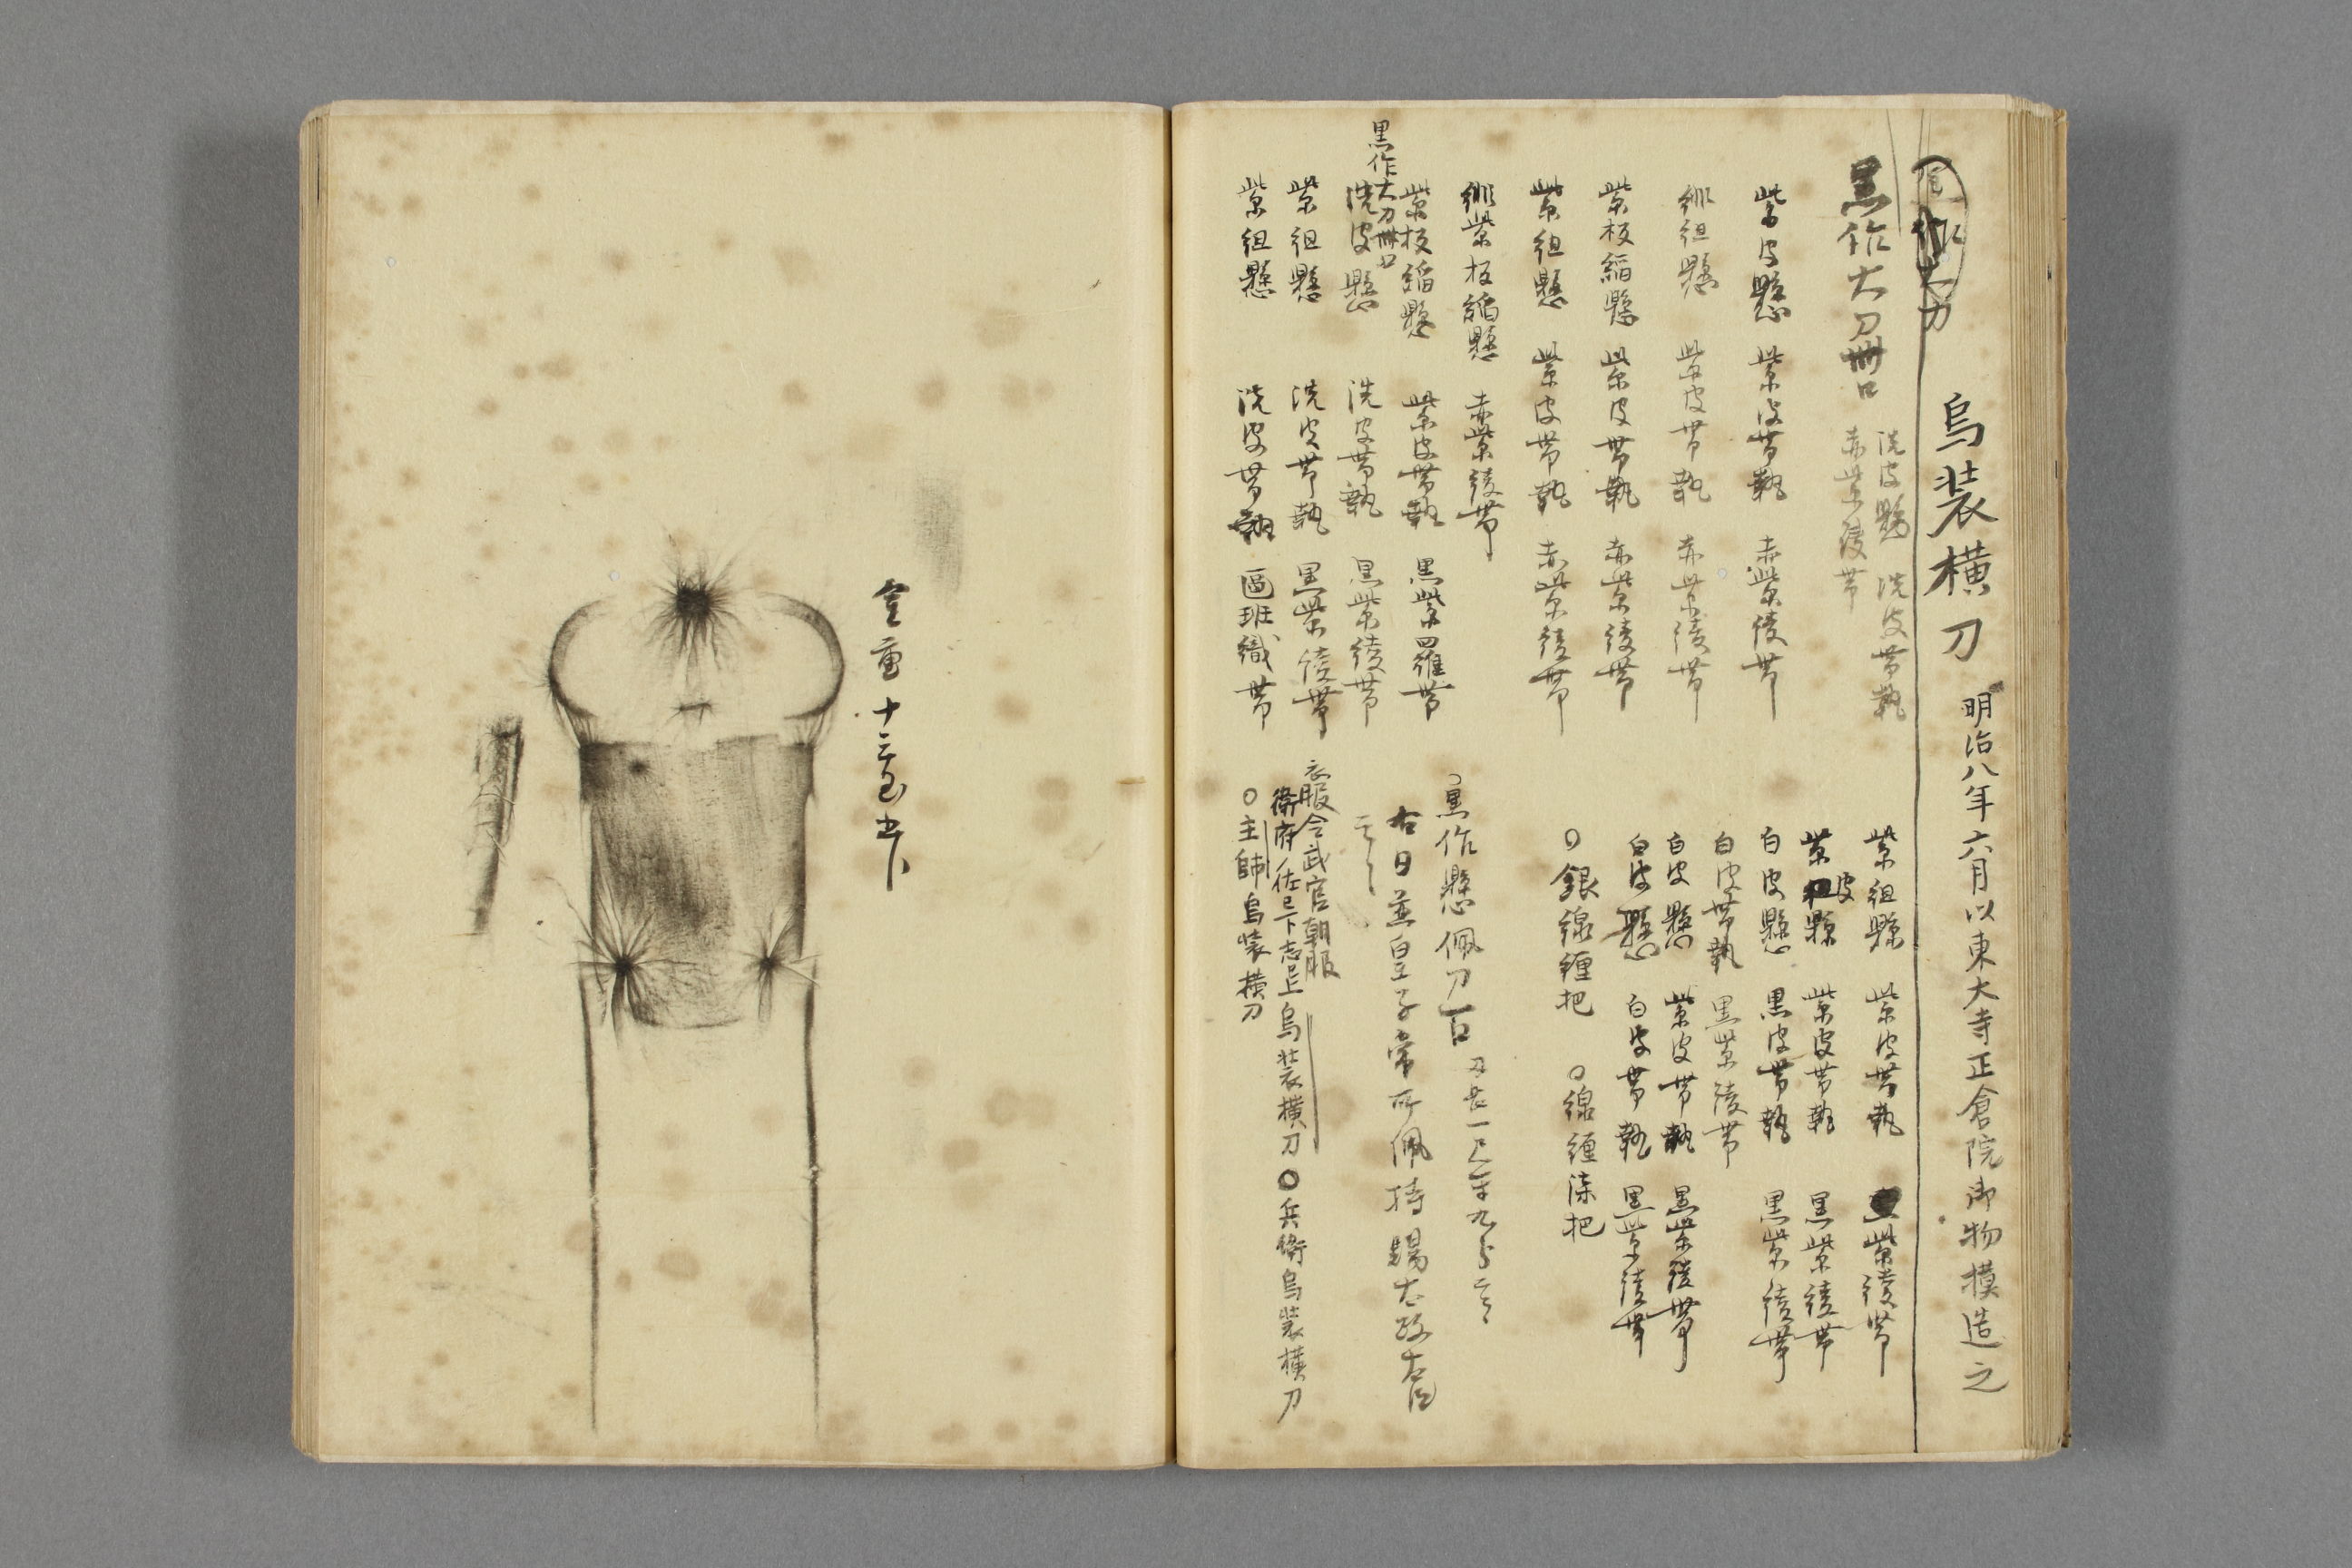 烏装横刀 明治八年六月以東大寺正倉院御物摸造之
大刀
黒作大刀卌口
洗皮懸 洗皮帯執
赤紫綾帯
紫皮懸 紫皮帯執 赤紫綾帯
緋組懸 紫皮帯執 赤紫綾帯
紫板縚懸 紫皮帯執 赤紫綾帯
紫組懸 紫皮帯執 赤紫綾帯
緋紫板縚懸 赤紫綾帯
紫板縚懸 紫皮帯執 黒紫羅帯
黒作大刀卌口
洗皮懸 洗皮帯執 黒紫綾帯
紫組懸 洗皮帯執 黒紫綾帯
紫組懸 洗皮帯執 班織帯
紫組懸 紫皮帯執 紫綾帯
紫皮懸 紫皮帯執 黒紫綾帯
白皮懸 黒皮帯執 黒紫綾帯
白皮帯執 黒紫綾帯
白皮懸 紫皮帯執 黒紫綾帯
白皮懸 白皮帯執 黒紫綾帯
○銀線纏把 ○線纏漆把
黒作懸佩刀一口 刃長一尺一寸九分云々
右日並皇子常所佩持賜太政大臣
云々
衣服令武官朝服
衛府佐已下志已上烏装横刀 ○兵衛烏装横刀
○主帥烏装横刀